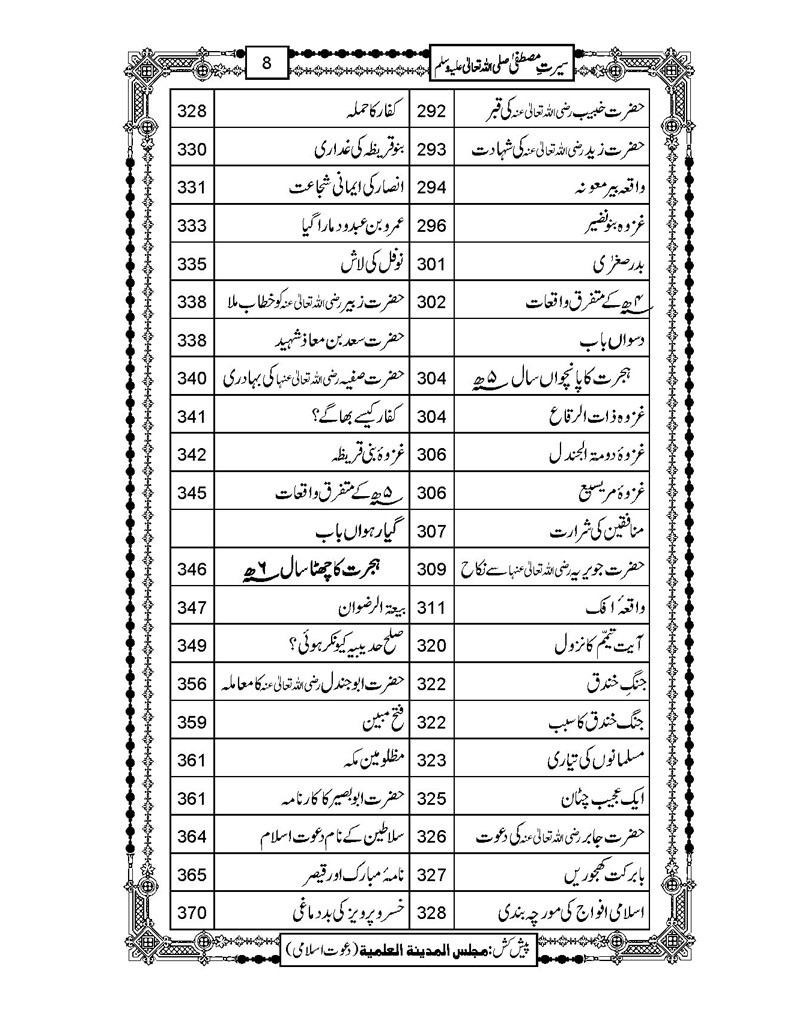 سیرتِ مصطفیٰ صلی اللہ تعالیٰ علیہ وسلم
8
حضرت خبیب رضی اللہ تعالیٰ عنہ کی قبر 292
حضرت زید رضی اللہ تعالیٰ عنہ کی شہادت 293
واقعہ بیر معونہ 294
غزوہ بنو نضیر 296
بدر صغریٰ 301
۴ھ کے متفرق واقعات 302
دسواں باب
ہجرت کا پانچواں سال ۵ھ 304
غزوہ ذات الرقاع 304
غزوۂ دومۃ الجندل 306
غزوۂ مریسیع 306
منافقین کی شرارت 307
حضرت جویریہ رضی اللہ تعالیٰ عنہا سے نکاح 309
واقعۂ افک 311
آیت تیمّم کا نزول 320
جنگِ خندق 322
جنگ خندق کا سبب 322
مسلمانوں کی تیاری 323
ایک عجیب چٹان 325
حضرت جابر رضی اللہ تعالیٰ عنہ کی دعوت 326
بابرکت کھجوریں 327
اسلامی افواج کی مورچہ بندی 328
کفار کا حملہ 328
بنو قریظہ کی غداری 330
انصار کی ایمانی شجاعت 331
عمرو بن عبدود مارا گیا 333
نوفل کی لاش 335
حضرت زبیر رضی اللہ تعالیٰ عنہ کو خطاب ملا 338
حضرت سعد بن معاذ شہید 338
حضرت صفیہ رضی اللہ تعالیٰ عنہا کی بہادری 340
کفار کیسے بھاگے؟ 341
غزوۂ بنی قریظہ 342
۵ھ کے متفرق واقعات 345
گیارہواں باب
ہجرت کا چھٹا سال ۶ھ 346
بیعۃ الرضوان 347
صلح حدیبیہ کیونکر ہوئی؟ 349
حضرت ابو جندل رضی اللہ تعالیٰ عنہ کا معاملہ 356
فتح مبین 359
مظلومین مکہ 361
حضرت ابو بصیر کا کارنامہ 361
سلاطین کے نام دعوت اسلام 364
نامۂ مبارک اور قیصر 365
خسرو پرویز کی بددماغی 370
پیش کش: مجلس المدینۃ العلمیۃ (دعوت اسلامی)